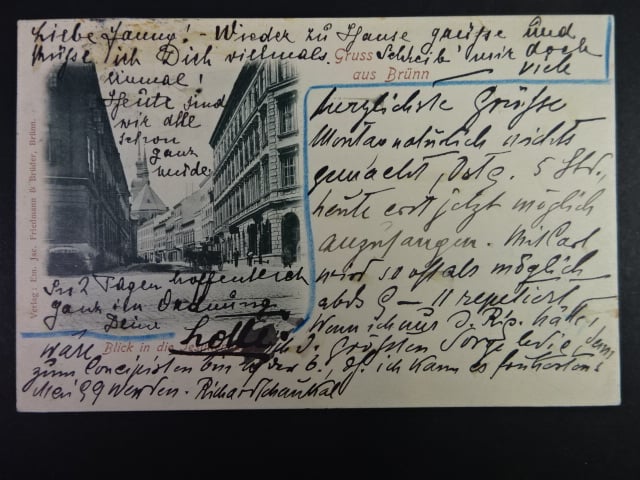 Liebe Fanny! - Wieder zu Hause grüsse und
küsse ich Dich vielmals. Schreib' mir doch
einmal! viele
Gruss
aus Brünn
Heute sind
wir alle
schon
ganz
müde
herzlichste Grüsse
Montag natürlich nichts
gemacht, 5 Std.,
heute erst jetzt möglich
anzufangen. Mit Carl
wird so oft als möglich
abds 9 - 11 repetiert
Wenn ich aus
In 2 Tagen hoffentlich
ganz in Ordnung.
Deine
Lotte
Blick in die
wäre ich d. grössten Sorge ledig, denn
zum Concipisten bin ich der 6., ich kann es frühestens
99 werden. Richard Schaukal
Verlag: Em. Jac. Friedmann & Brüder, Brünn.